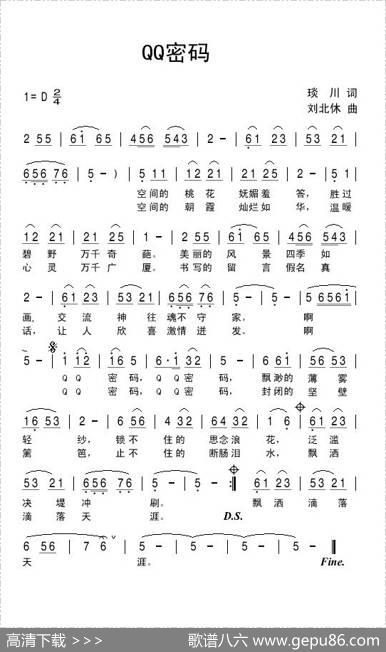 QQ密码
1=D 2/4
琰 川 词
刘北休 曲
2 55 | 61 65 | 456 543 | 2 - | 61 23 | 53 21 |
656 76 | 5 - ) | 5 11 | 12 21 | 21 22 | 2 - | 5 1 |
空间的 桃花 妩媚羞 答，胜过
空间的 朝霞 灿烂如 华，温暖
12 21 | 21 25 | 5 - | 221 | 61 65 | 456 543 |
碧 野 万千奇 葩。美丽的 风 景 四季 如
心 灵 万千广 厦。书写的 留 言 假名 真
2 - | 61 23 | 53 21 | 656 76 | 5 - | 5 6561 |
画，交流 神往 魂不守 家，啊
话，让人 欣喜 激情迸 发。啊
5 - | 1 12 | 165 | 6·1 43 | 2 - | 61 65 | 56 53 |
QQ 密码，QQ 密码，飘渺的 薄雾
QQ 密码，QQ 密码，封闭的 坚壁
16 53 | 2 - | 6 56 | 4 32 | 64 32 | 1 6 | 61 23 |
轻 纱，锁不 住的 思念浪 花，泛滥
篱 笆，止不 住的 断肠泪 水，飘洒
53 21 | 656 76 | 5 - | 5 - :| 61 23 | 53 21 |
决堤冲 刷。 飘洒 滴落
滴落天 涯。 D.S.
6 56 | 7 6 | 5 - | 5 - | 5 - | 5 - ‖
天 涯。 Fine.
高清下载 >>>
歌谱八六 www.gepu86.com